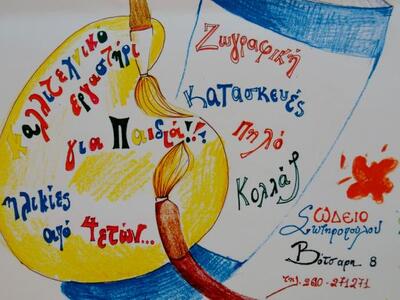 αλλιτεχνικο
εργαστήρι
για Παιδιά!!!
ηλικίες
από 4ετών...
Ζωγραφική
Κατασκευές
Πηλό
Κολλάζ
ΩΔΕΙΟ
Σωτηροπούλου
Βότσαρη 8
τηλ. 260-271271